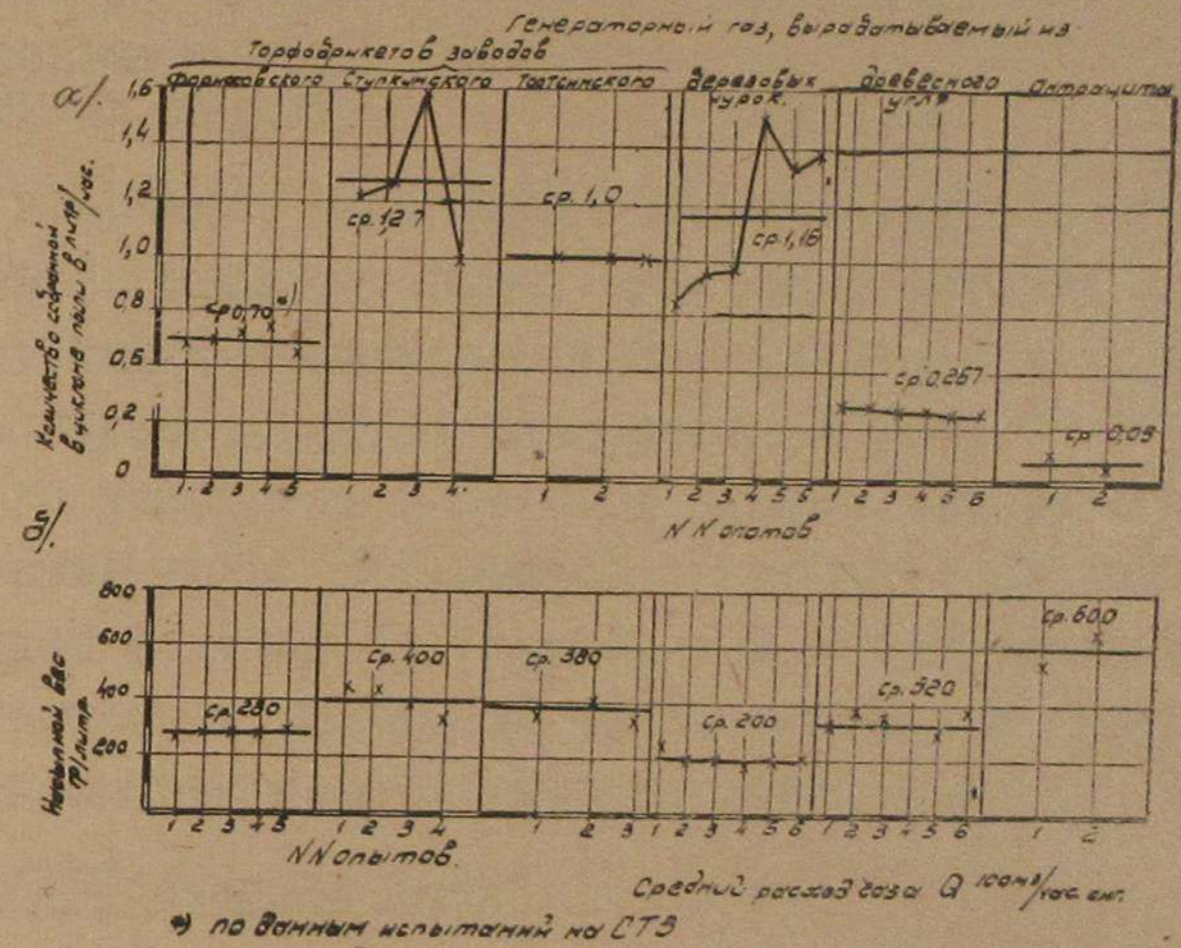 Генераторный газ, вырабатываемый из
Торфобрикетов заводов
Ступкинского
Березовых чурок.
Древесного угля
Антрацита
а/.
Количество собранной
в циклоне пыли в литр/час.
1,6
1,4
1,2
1,0
0,8
0,6
0,2
0
ср 0,70 *)
ср. 1,27
ср. 1,0
ср. 1,16
ср. 0,267
ср. 0,09
1. 2 3 4 5 1 2 3 4. 1 2 1 2 3 4 5 6 1 2 3 4 5 6 1 2
N N опытов
Насыпной вес
гр/литр.
800
600
400
200
ср. 280
ср. 400
ср. 380
ср. 200
ср. 320
ср. 600
1 2 3 4 5 1 2 3 4 1 2 3 1 2 3 4 5 6 1 2 3 4 5 6 1 2
N N опытов.
Средний расход газа Q 100 м3/час.
*) по данным испытаний на СТЗ